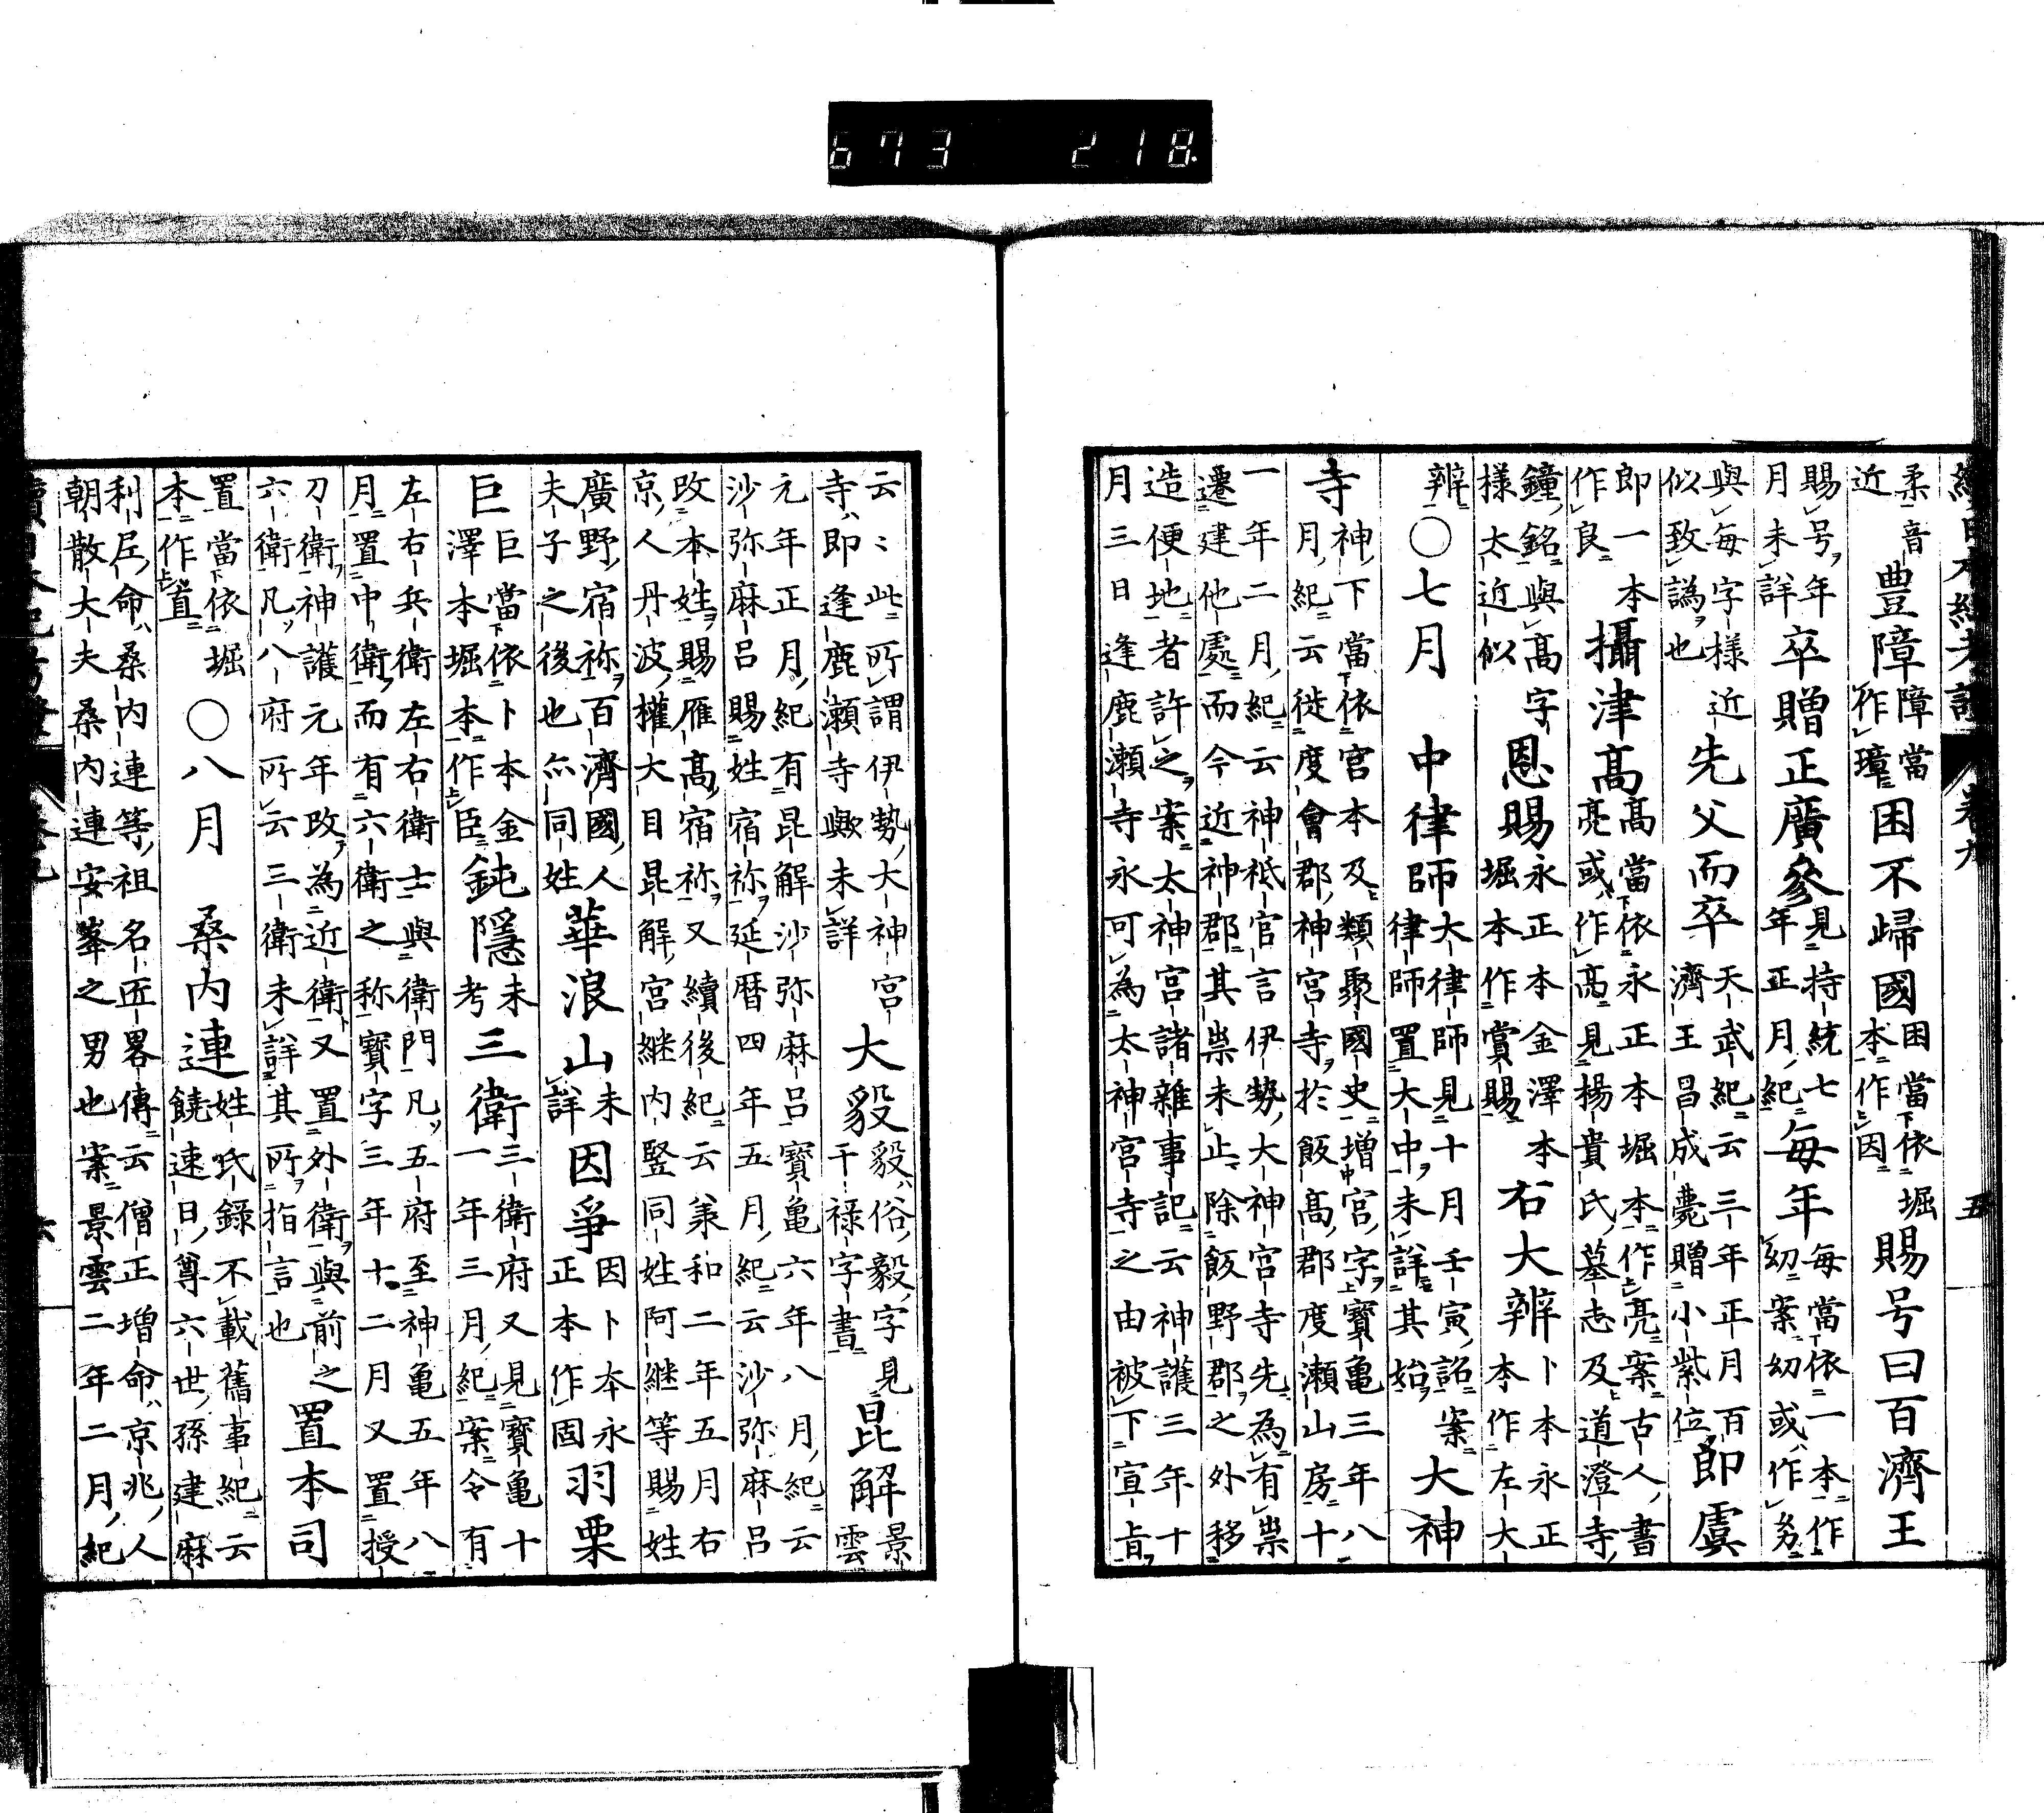 673 218
柔音近
豊障
障當作璋
困不歸國
困當依堀本作因
賜号曰百濟王
賜号年月未詳
卒贈正廣參
見持統七年正月紀
每年
每當依一本作幼案幼或作㓜
與每字樣近似致譌也
先父而卒
天武紀云三年正月百濟王昌成薨贈小紫位
即虞
即一本作良
攝津高
高當依永正本堀本作亮案古人書亮或作髙見楊貴氏墓志及道澄寺
鐘銘與高字樣太近似
恩賜
永正本金澤本堀本作賞賜
右大辨
卜本永正本作左大
辨
○七月
中律師
大律師見十月壬寅詔案律師置大中未詳其始
大神
寺
神下當依官本及類聚國史增宮字寶亀三年八月紀云徙度會郡神宮寺於飯高郡度瀬山房十
一年二月紀云神祇官言伊勢大神宮寺先為有祟遷建他處而今近神郡其祟未止除飯野郡之外移
造便地者許之案太神宮諸雜事記云神護三年十月三日逢鹿瀬寺永可為太神宮寺之由被下宣旨
云〻此所謂伊勢大神宮寺即逢鹿瀬寺歟未詳
大毅
毅俗毅字見干禄字書
昆解
景雲
元年正月紀有昆解沙弥麻呂寶亀六年八月紀云沙弥麻呂賜姓宿祢延暦四年五月紀云沙弥麻呂
改本姓賜雁高宿祢又續後紀云承和二年五月右京人丹波權大目昆解宮継内竪同姓阿継等賜姓
廣野宿祢百濟國人夫子之後也亦同姓
華浪山
未詳
因爭
因卜本永正本作固
羽栗
巨
巨當依卜本金澤本堀本作臣
鈍隠
未考
三衛
三衛府又見寶亀十一年三月紀案令有
左右兵衛左右衛士與衛門凡五府至神亀五年八月置中衛而有六衛之称寶字三年十二月又置授
刀衛神護元年改為近衛又置外衛與前之六衛凡八府所云三衛未詳其所指言也
置本司
置當依堀本作直
○八月
桑内連
姓氏録不載舊事紀云饒速日尊六世孫建麻
利尼命桑内連等祖名匠畧傳云僧正増命京兆人朝散大夫桑内連安峯之男也案景雲二年二月紀